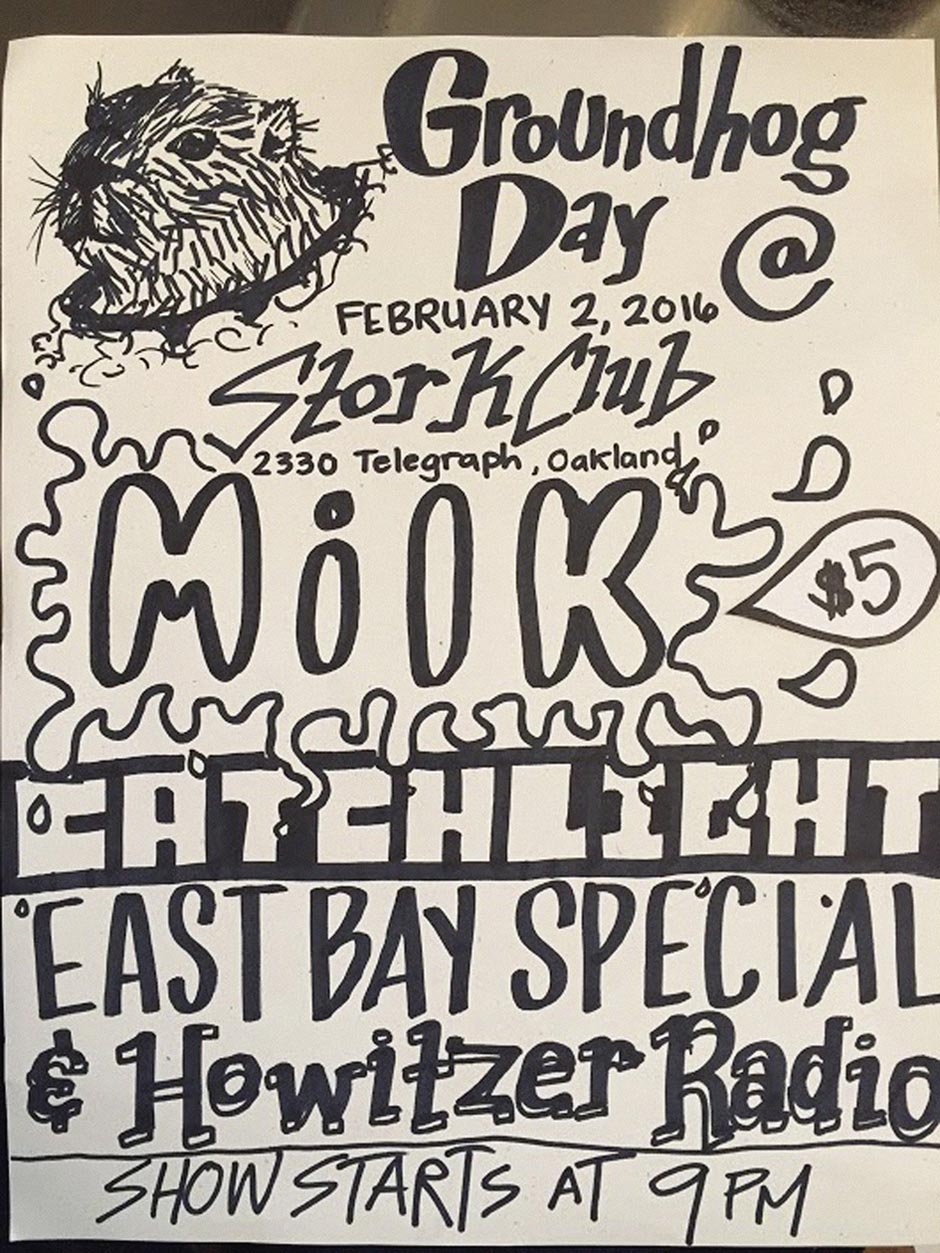 Groundhog
Day @
FEBRUARY 2, 2016
Stork Club
2330 Telegraph, Oakland
MilK
$5
CATCHLIGHT
EAST BAY SPECIAL
& Howitzer Radio
SHOW STARTS AT 9 PM